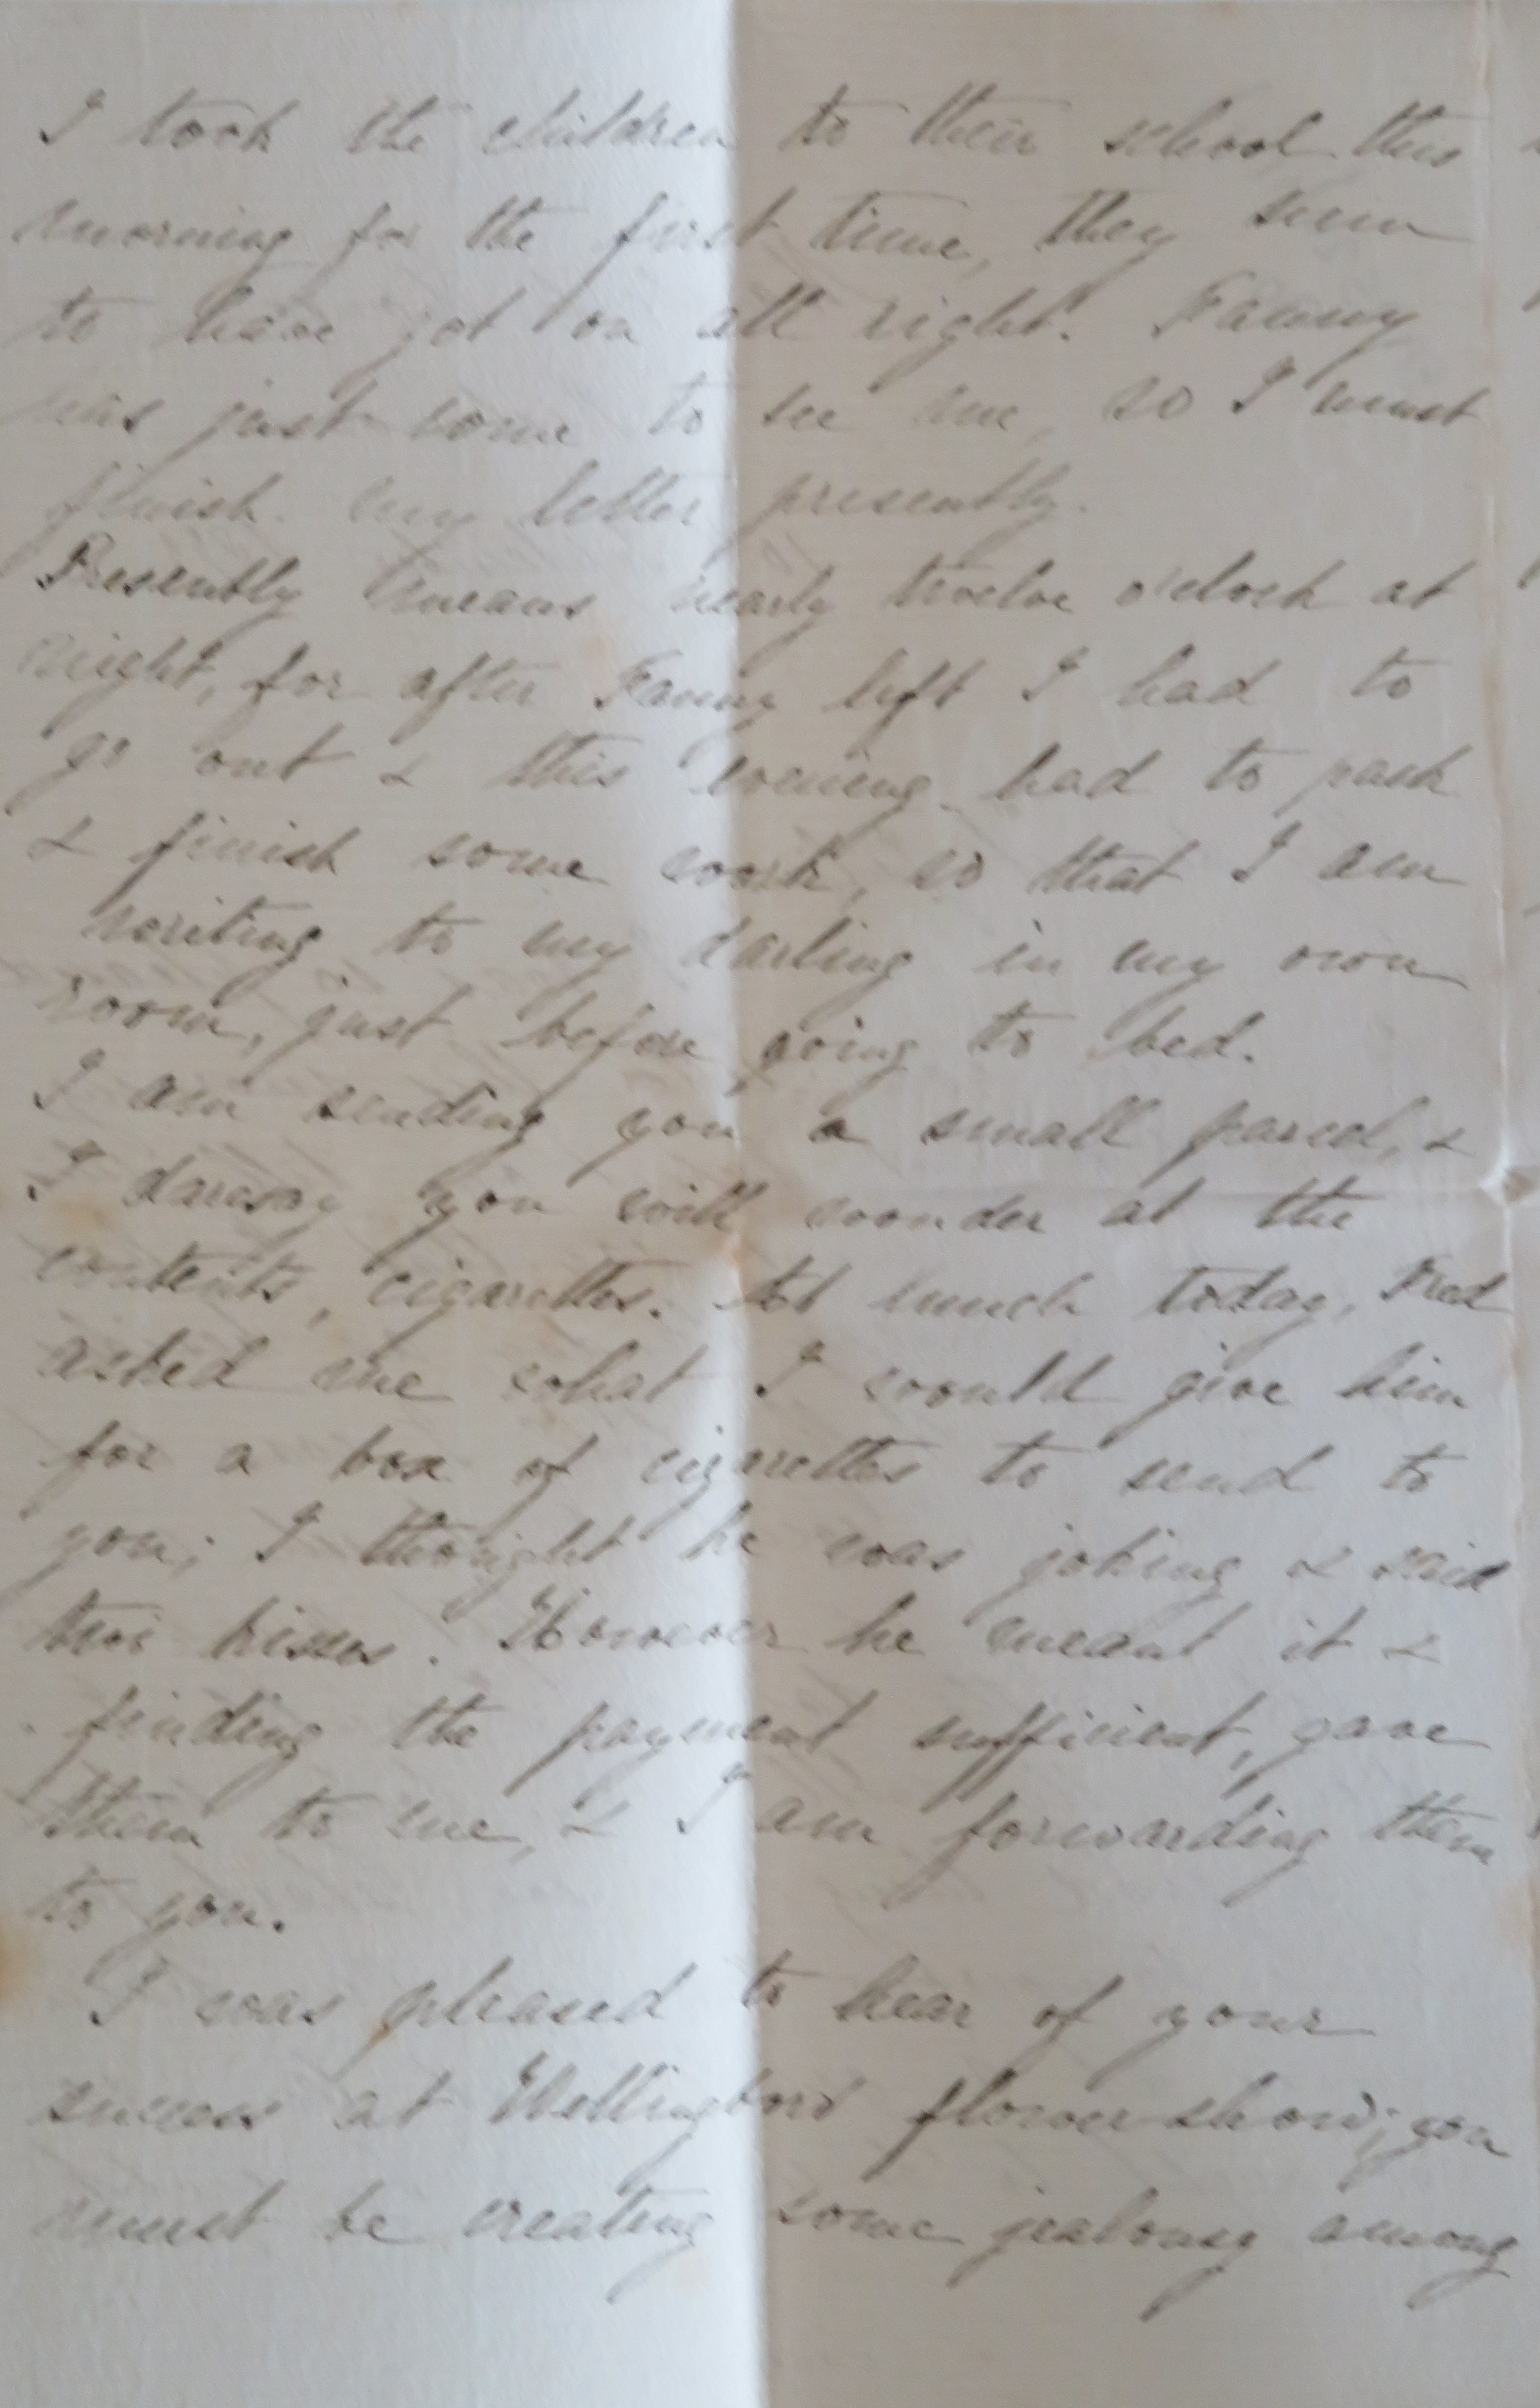 I took the children to their school this
morning for the first time, they seem
to have got on all right. Fanny
has just come to see me, so I must
finish my letter presently.
Presently means nearly twelve o'clock at
night, for after Fanny left I had to
go out & this evening had to pack
& finish some work, so that I am
writing to my darling in my own
room, just before going to bed.
I am sending you a small parcel, &
I daresay you will wonder at the
contents, cigarettes. At lunch today, Fred
asked me what I would give him
for a box of cigarettes to send to
you; I thought he was joking & said
two kisses. However he meant it &
finding the payment sufficient, gave
them to me, & I am forwarding them
to you.
I was pleased to hear of your
success at Wellingboro' flower show; you
must be creating some jealousy among